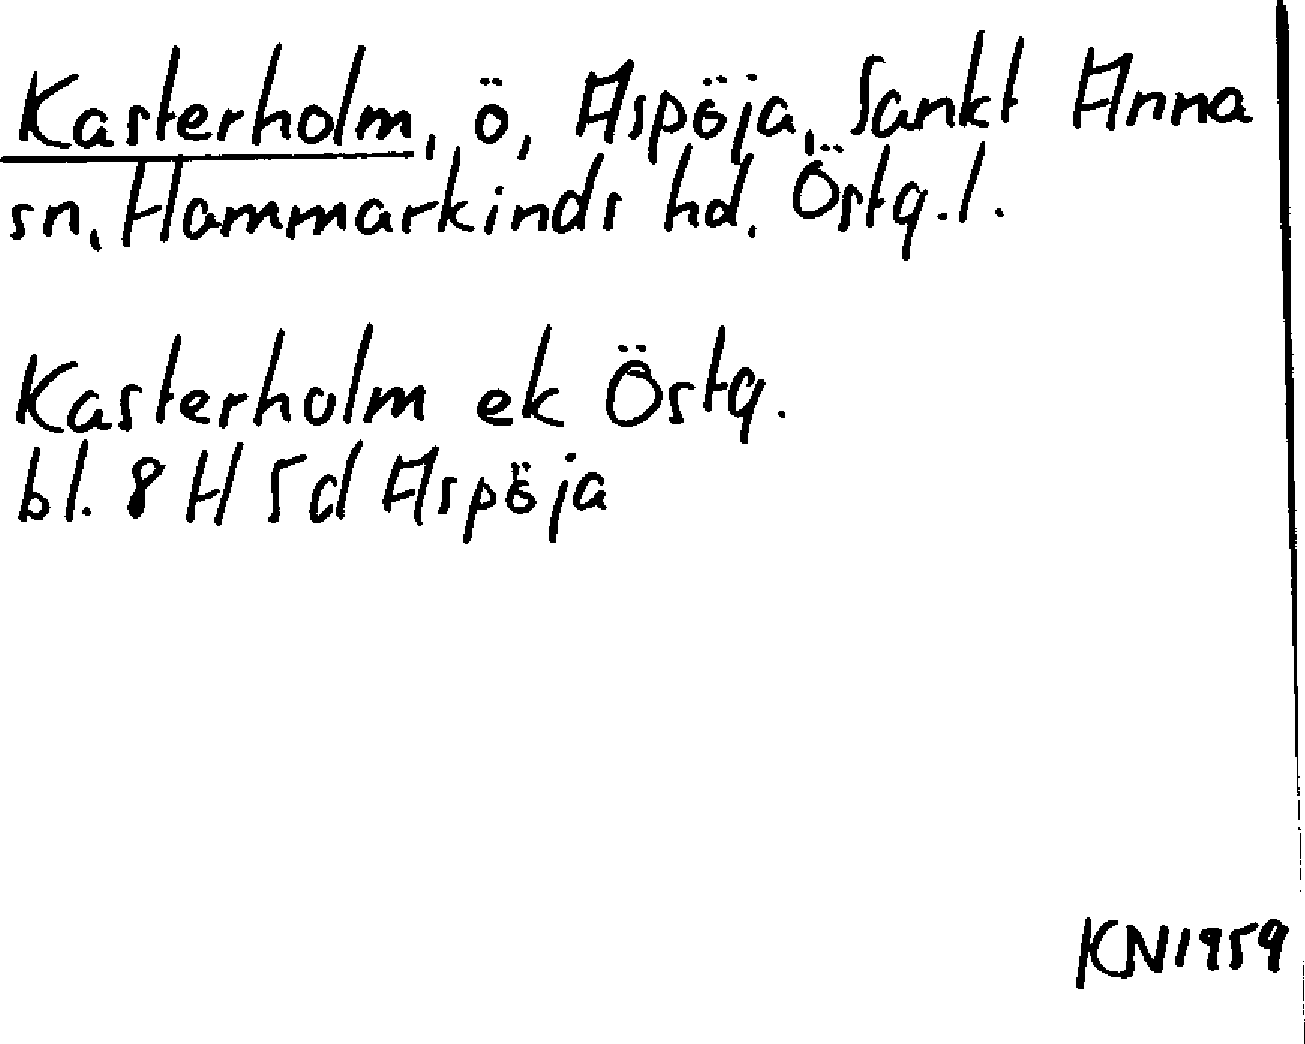 Kasterholm, ö, Aspöja, Sankt Anna
sn, Hammarkinds hd. Östg.l.
Kasterholm ek Östg.
bl. 8 H 5d Aspöja
KN1959